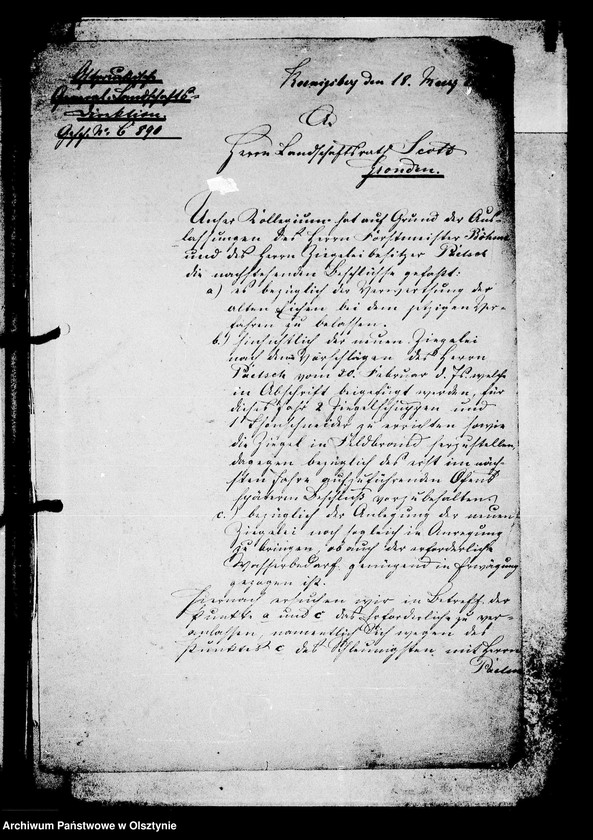 Ostpreußische
General-Landschafts-
Direktion.
Gesch. Nr. 6 890
Koenigsberg den 18. März
A.
Herrn Landschaftsrath Scott
Gronden.
Unser Kollegium hat auf Grund der Aus-
lassungen des Herrn Forstmeister Böhm
und des Herrn Ziegeleibesitzer Paetsch
die nachstehenden Beschlüsse gefaßt:
a) es bezüglich der Verwerthung der
alten Eichen bei dem jezigen Ver-
fahren zu belassen,
b.) hinsichtlich der neuen Ziegelei
nach den Vorschlägen des Herrn
Paetsch vom 20. Februar d. Js. welche
in Abschrift beigefügt werden, für
dieses Jahr 2 Ziegelschuppen und
1 Thonschneider zu errichten sowie
die Ziegel in Feldbrand herzustellen,
dagegen bezüglich des erst im näch-
sten Jahre aufzuführenden Ofens
spätern Beschluß vorzubehalten,
c.) bezüglich der Anlegung der neuen
Ziegelei noch sogleich in Anregung
zu bringen, ob auch der erforderliche
Wasserbedarf genügend in Erwägung
gezogen ist.
Hiernach ersuchen wir in Betreff der
Punkte a und c das Erforderliche zu ver-
anlassen, namentlich Sich wegen des
Punktes c des Schleunigsten mit Herrn
Paetsch
Archiwum Państwowe w Olsztynie